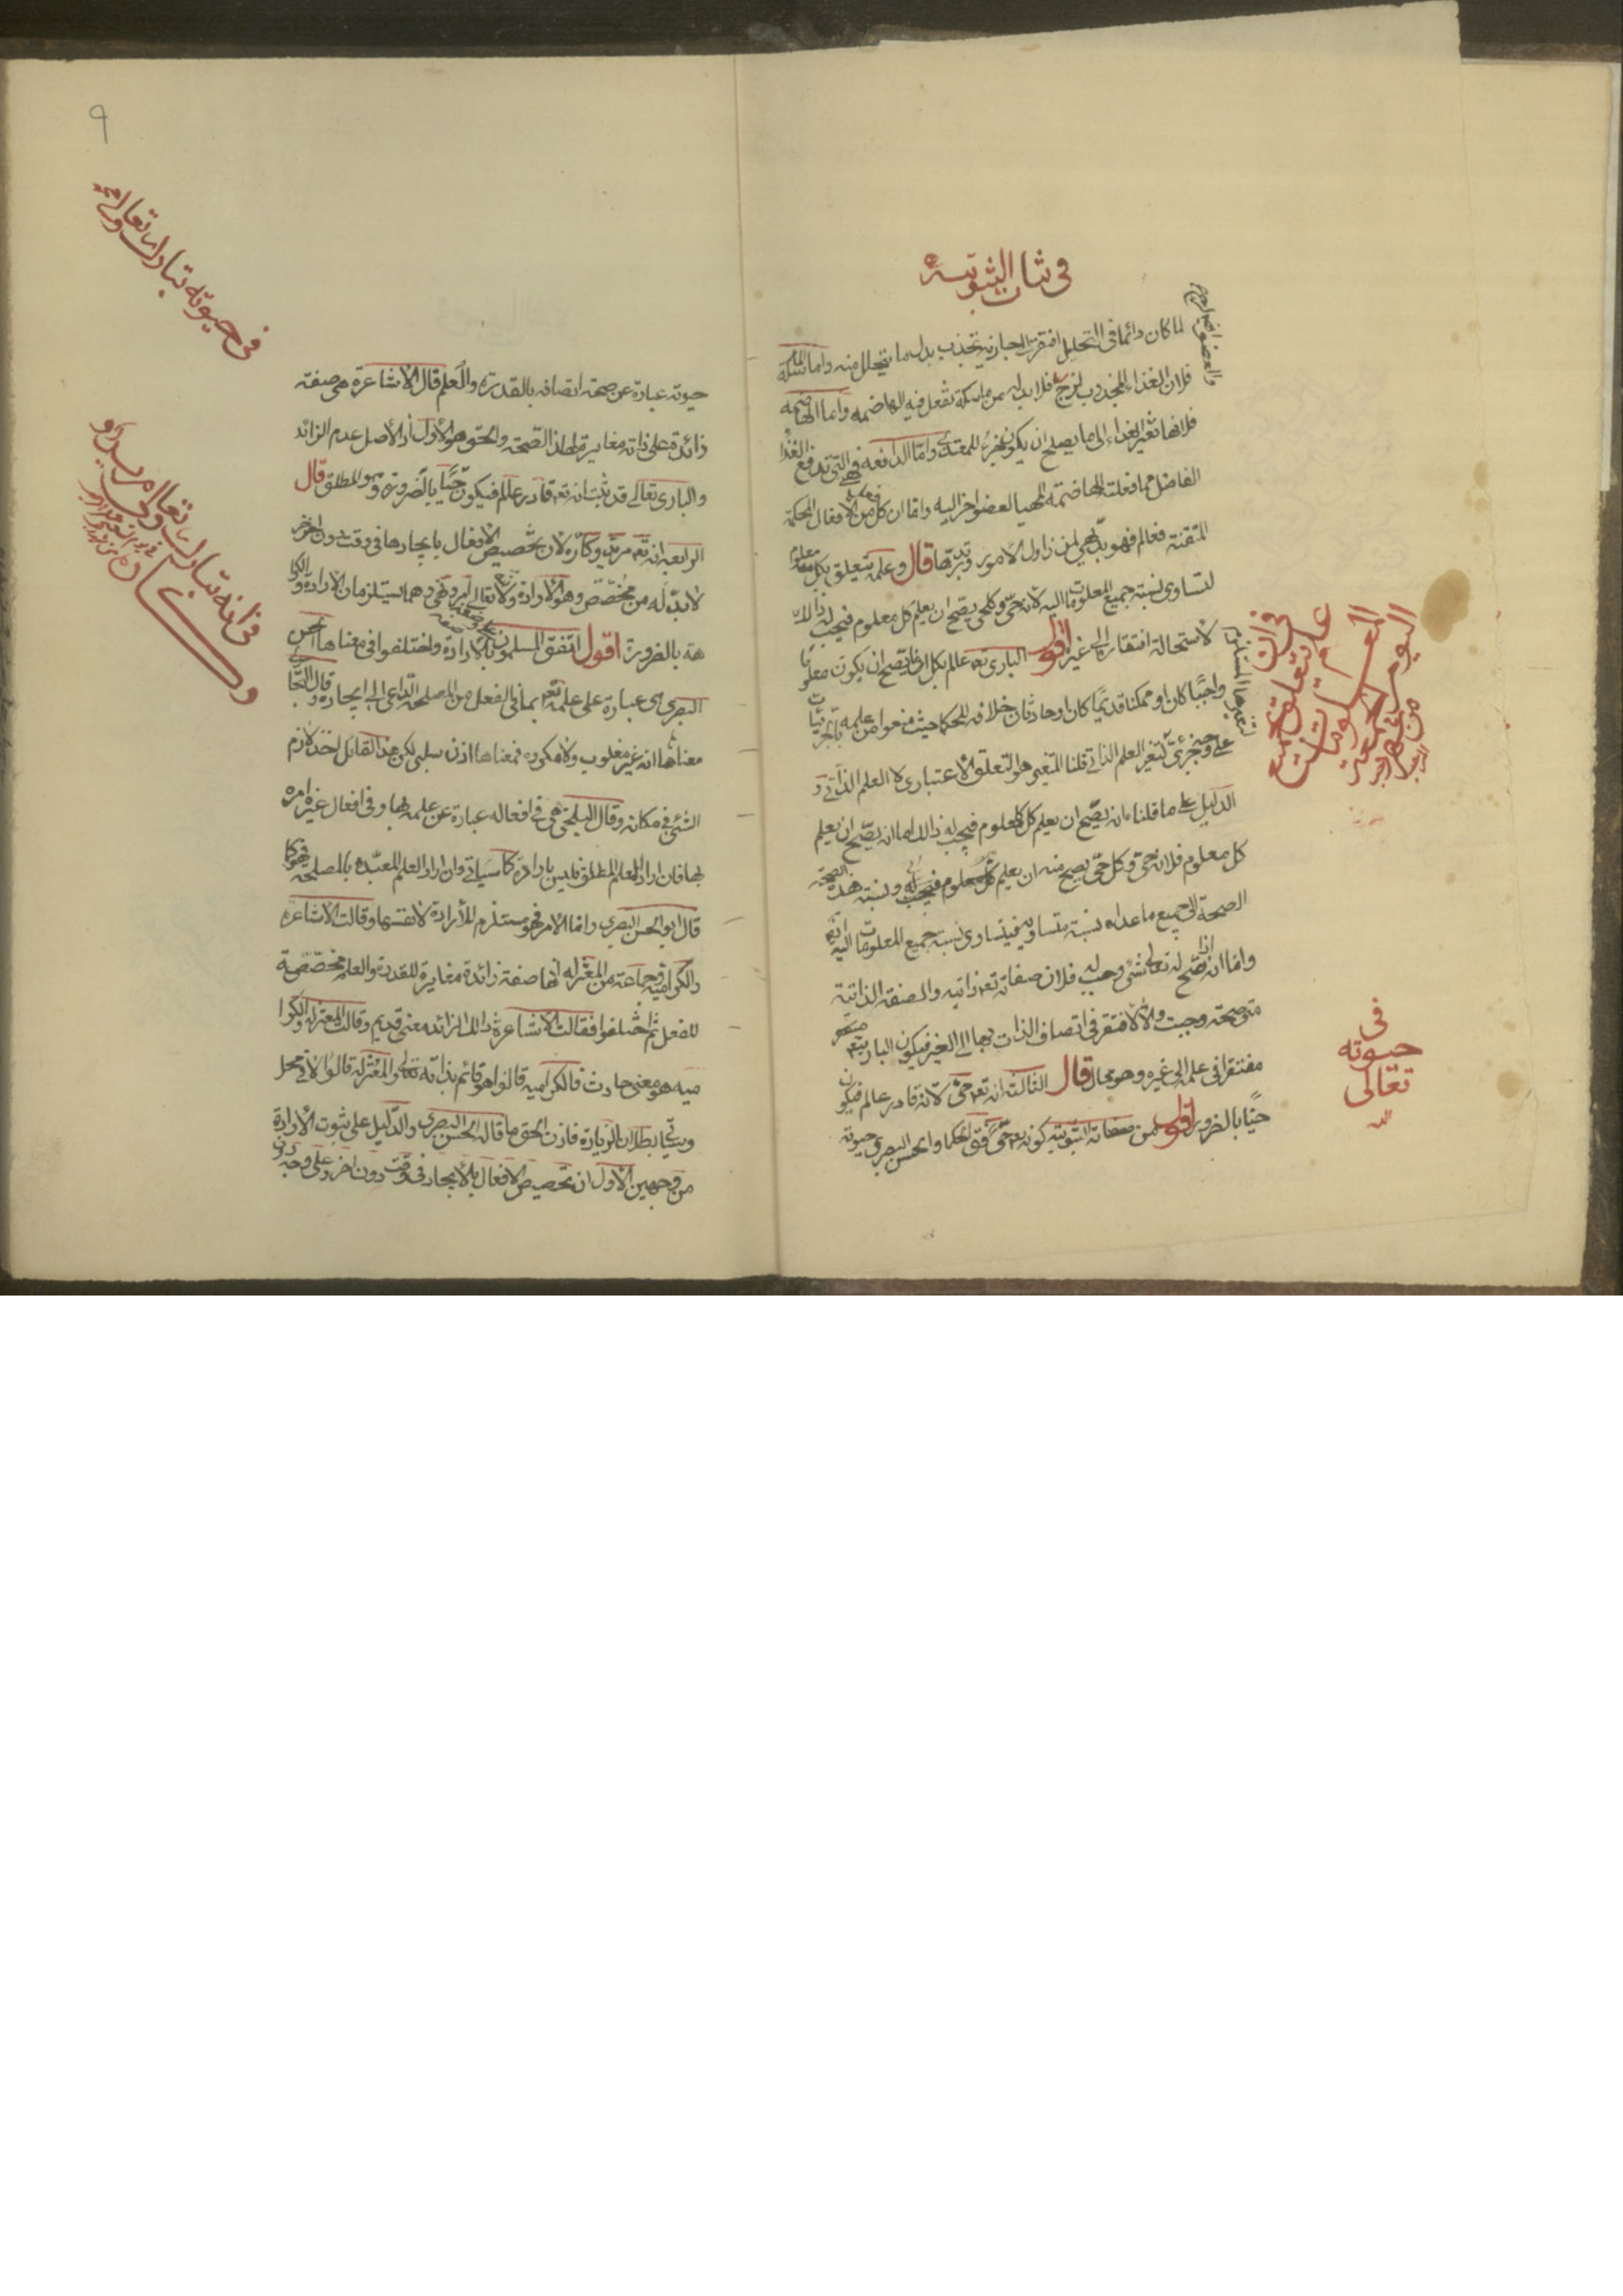 في ثان الثبوتية
لما كان دائما في التحليل افتقرت الى جاذبة تجذب بدل ما يتحلل منه واما الماسكة
فلان الغذاء المجذوب لزج فلابد له من ماسكة لتفعل فيه الهاضمة واما الهاضمة
فلانها تغير الغذاء الى ما يصلح ان يكون جزء للمغتذى واما الدافعة فهي التي تدفع الغذاء
الفاضل مما فعلته الهاضمة المهيا لعضو اخر اليه واما ان كل من فعل الافعال المحكمة
المتقنة فعالم فهو بديهي لمن زاول الامور وتدبرها قال وعلمه يتعلق بكل معلوم
لتساوى نسبة جميع المعلومات اليه لانه حي وكل حي يصح ان يعلم كل معلوم فيجب له ذلك
لاستحالة افتقاره الى غيره اقول البارى تعه عالم بكل ما يصح ان يكون معلوما
واجبا كان او ممكنا قديما كان او حادثا خلافا للحكما حيث منعوا من علمه بالجزئيات
على وجه جزئي لتغير العلم الذاتي قلنا المتغير هو التعلق الاعتبارى لا العلم الذاتي و
الدليل على ما قلناه انه يصح ان يعلم كل معلوم فيجب له ذالك اما انه يصح ان يعلم
كل معلوم فلانه حي وكل حي يصح منه ان يعلم كل معلوم فيجب له ونسبة هذه الصحة
الصحة الى جميع ما عداه نسبة متساوية فيتساوى نسبة جميع المعلومات اليه ايضا
واما انه اذا صح له تعالى شئ وجب له فلان صفاته تعه ذاتية والصفة الذاتية
متى صحت وجبت والا لافتقر في اتصاف الذات بها الى الغير فيكون البارى تعه
مفتقرا في علمه الى غيره وهو محال قال الثالثة انه تعه حي لانه قادر عالم فيكون
حيا بالضرورة اقول من صفاته الثبوتية كونه تعه حي فقال الحكما وابو الحسن البصرى حيوته
في ان علمه يتعلق بجميع المعلومات
في
حيوته
تعالى
٩
حيوته عبارة عن صحة اتصافه بالقدرة والعلم قال الاشاعرة هي صفة
زائدة على ذاته مغايرة لهذا الصحة والحق هو الاول اذ الاصل عدم الزائد
والبارى تعالى قد ثبت انه تعه قادر عالم فيكون حيا بالضرورة وهو المطلق قال
الرابعة انه تعه مريد وكاره لان تخصيص الافعال بايجادها في وقت دون اخر
لابد له من مخصص وهو الارادة ولانه تعالى امر ونهى وهما يستلزمان الارادة والكرا
هة بالضرورة اقول اتفق المسلمون بالارادة واختلفوا في معناها
البصرى هي عبارة على علمه تعه بما في الفعل من المصلحة الداعى الى ايجاده وقال النجا
معناها انه غير مغلوب ولا مكره فمعناها اذن سلبى لكن هذا القائل اخذ لازم
الشئ في مكانه وقال البلخي هي في افعاله عبارة عن علمه بها وفي افعال غيره امره
بها فان اراد العلم المطلق فليس بارادة كما سياتي وان اراد العلم المقيد بالمصلحة فهو كما
قال ابو الحسن البصرى واما الامر فهو مستلزم للارادة لا نفسها وقالت الاشاعرة
والكرامية وجماعة من المعتزله انها صفة زائدة مغايرة للقدرة والعلم مخصصة
للفعل ثم اختلفوا فقالت الاشاعرة ذالك الزائد معنى قديم وقالت المعتزله والكرا
مية هو معنى حادث فالكرامية قالوا هو قائم بذاته تعالى والمعتزلة قالوا لا في محل
وسياتي بطلان الزيادة فاذن الحق ما قاله الحسن البصرى والدليل على ثبوت الارادة
من وجهين الاول ان تخصيص الافعال بالايجاد في وقت دون اخر وعلى وجه دون
في حيوته تبارك وتعالى
في انه تبارك وتعالى مريد و
وكاره